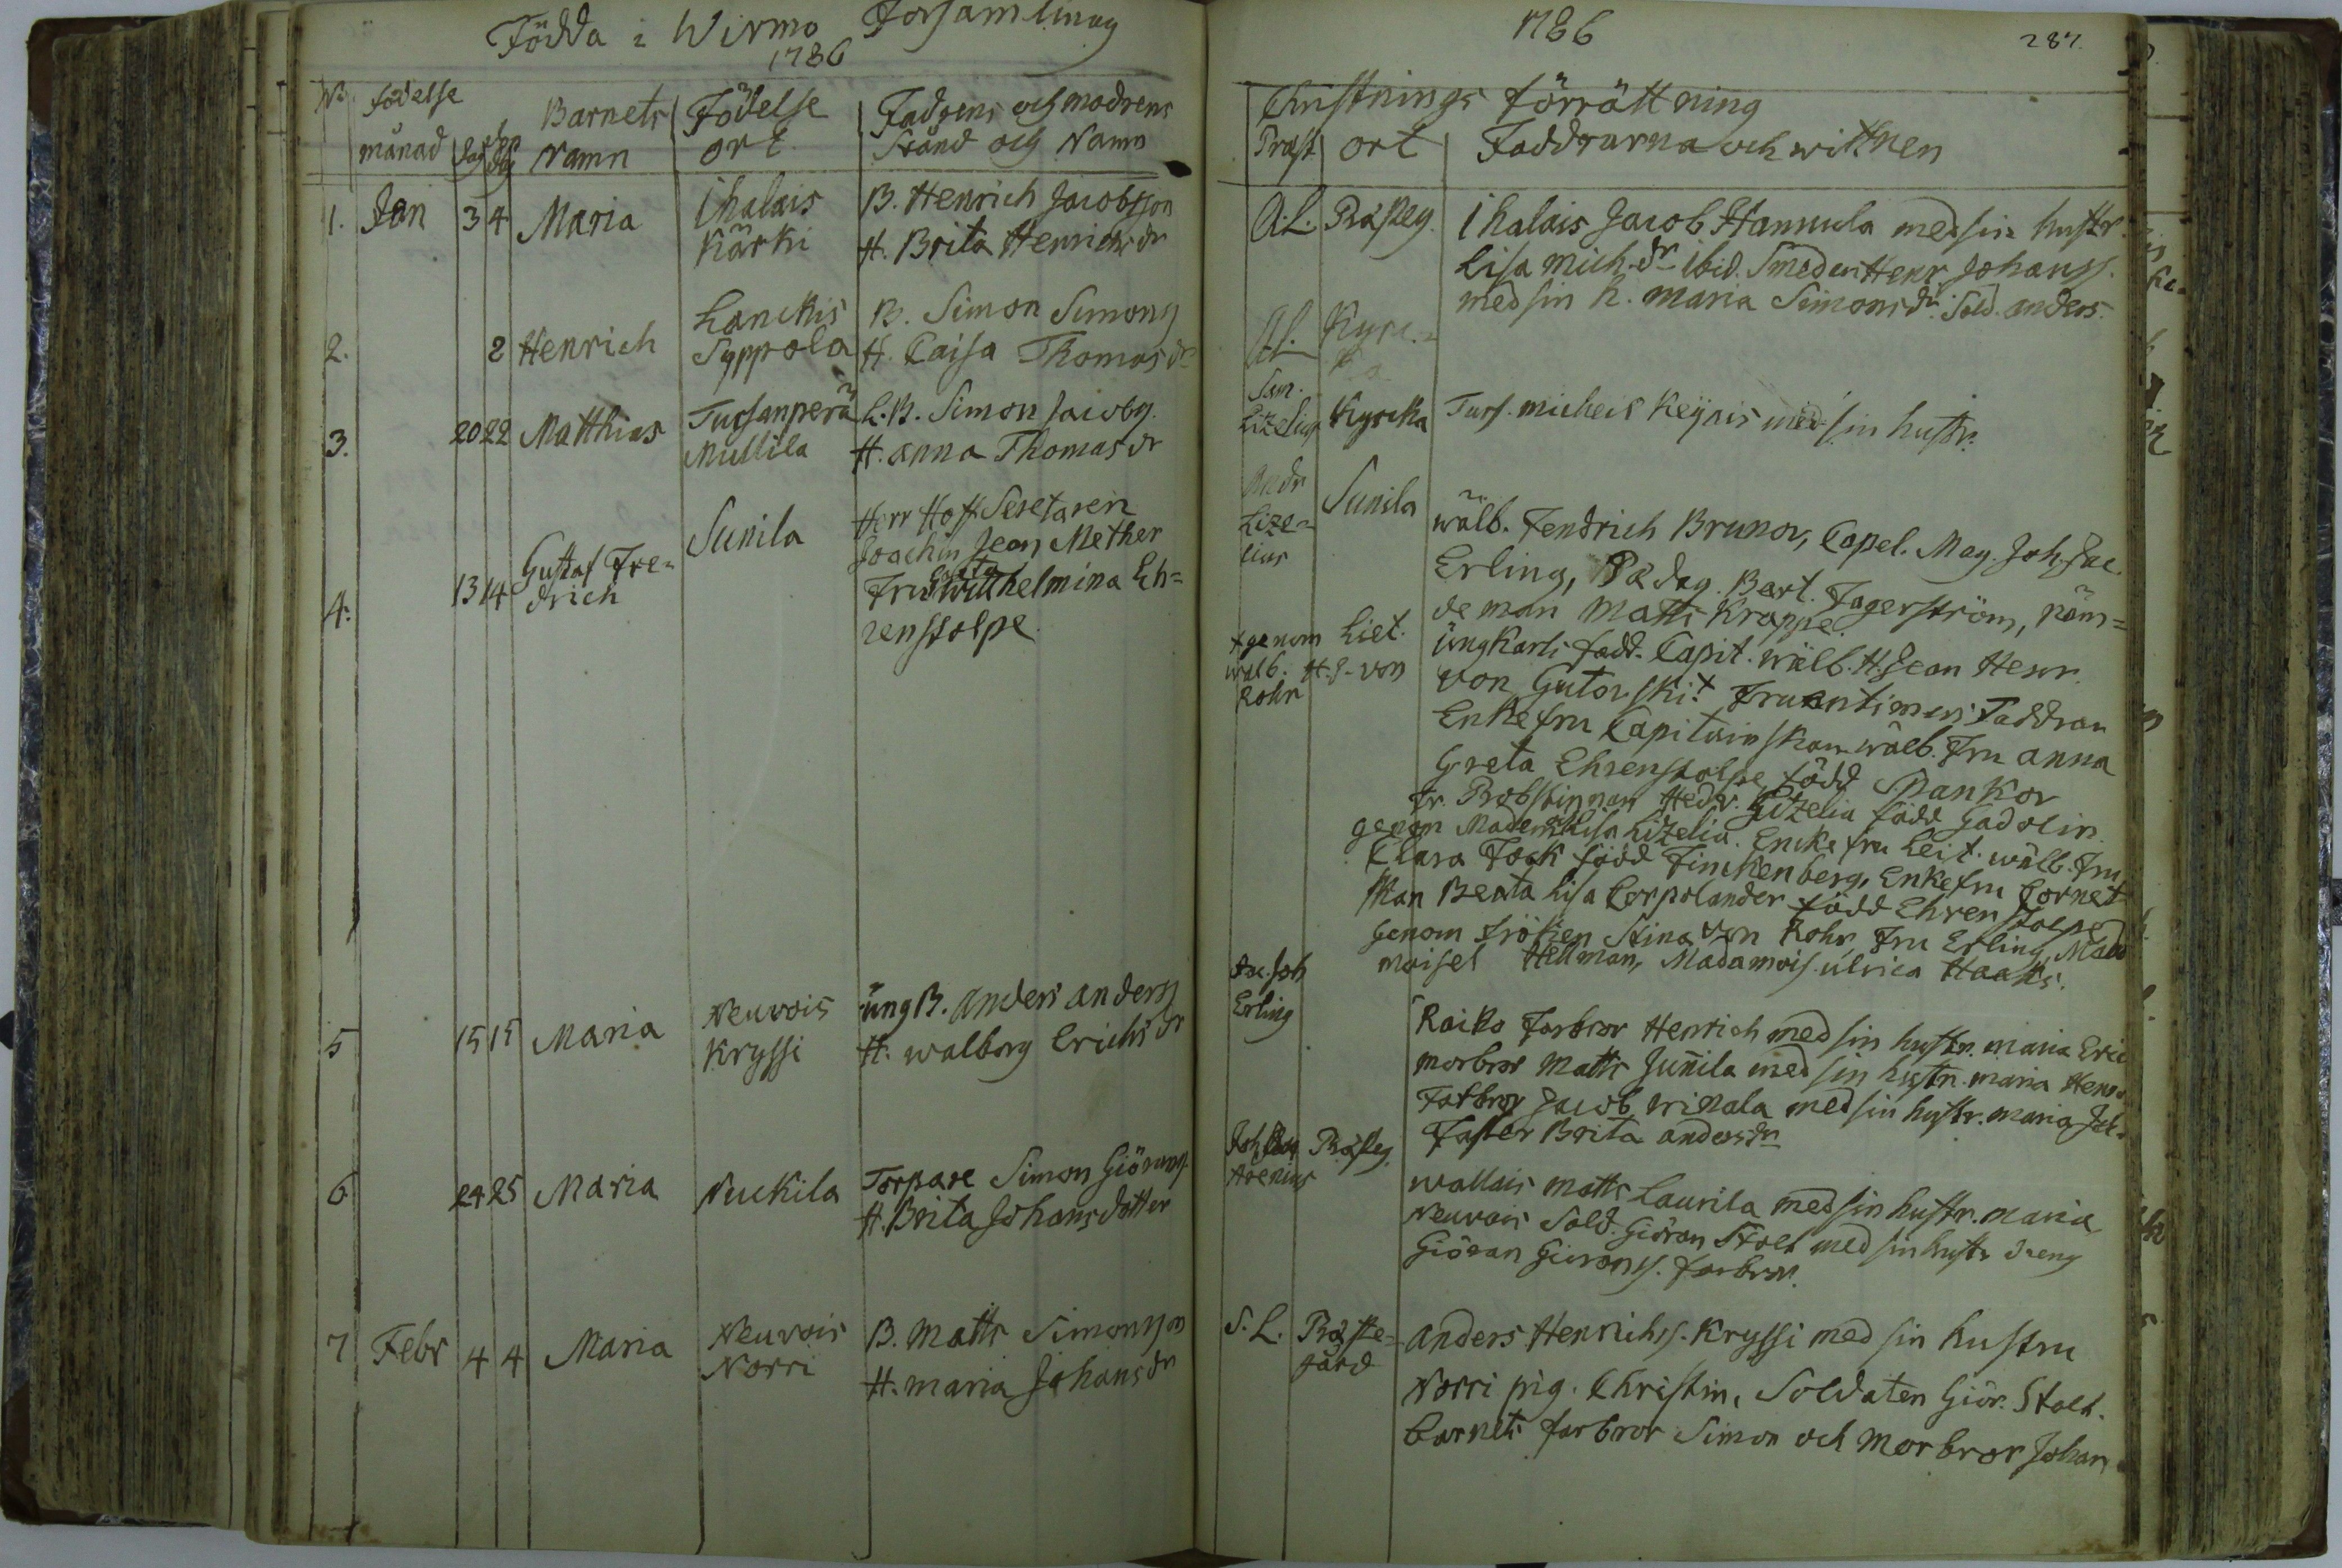 Födda i Wirmo Församlinug
1786
No födelse
månad dag
Barnets
Namn
Födelse
ort
Fadrens och modrens
Stånd och Namn
1. Jan 3 4 Maria
Ihalais
Kärki
B. Henrich Jacobsson
H. Brita Henrichsdr
2. 2 Henrich
Lanckis
Syppola
B. Simon Simons
H. Caisa Thomasdr
3. 20 22 Matthias
Tursanperä
Mullila
L.B. Simon Jacobs.
H. anna Thomasdr
4. 13 14 Gustaf Fre=
drich
Sunila
Herr Hoff Secretaren
Joachin Jean Mether
Fru Greta Willhelmina Eh=
renstolpe.
5 15 15 Maria
Neuvois
Kryssi
ung B. Anders anderss
H. walborg Erichsdr
6 24 25 Maria
Nuckila
Torpare Simon Giörans
H. Brita Johansdotter
7 Febr 4 4 Maria
Neuvois
Norri
B. Matts Simonsson
H. maria Johansdr
1786
287.
Christnings förrättning
Präst ort Faddrarna och wittnen
A.L. Prästeg. Ihalais Jacob Hannula med sin hustr.
Lisa Mich.dr ibid. Smeden Henr Johanss.
med sin h. maria Simonsdr. Sold. anders.
A.L. Kyrc.=
ka
Sim.
Lizelius Kyrcka Turs. micheil Keynis med sin hustr.
Andr
Lize=
lius
Sunila
wälb. Fendrich Brunov, Capel. Mag. Joh. Jac.
Erling, Pædag. Bert. Fagerström, näm=
de man Matts Krappe.
ungKarls fadd. Capit. wälb. H. Jean Henr.
von Gutovski.+ Fruentimers Faddran
+genom Liet.
wälb. H. J. von
Rohr
Enkefru Capitainskan wälb. Fru anna
Greta Ehrenstolpe född Pankor
Fr. Probstinnan Hedv. Lizelia född Gadolin
genom Madem. Lisa Lizelia. Encke fru Leit. wälb. Fru
Clara Fock född Finckenberg, Enkefru Cornet
skan Beata Lisa Corpolander född Ehrenstolpe
Genom fröken Stina von Rohr, Fru Erling, Mad
moisel Hellman, Madamois. ulrica Haaks.
Jac. Joh
Erling
Raiko Farbror Henrich med sin hustr. maria Eric
morbror Matts Junila med sin hustr. maria Henr.
Farbror Jacob Wikala med sin hustr. maria Joh.
Faster Brita andersdr
Prästeg.
Arenius
wallais matts Laurila med sin hustr. maria
Neuvois Sold. Giöran Stolt med sin hustr dreng
Giöran Giörans. farbror.
S. L. Präste=
gård
Anders Henrichs. Kryssi med sin hustru
Norri pig. Christin, Soldaten Giör. Stolt.
barnets farbror Simon och morbror Johan